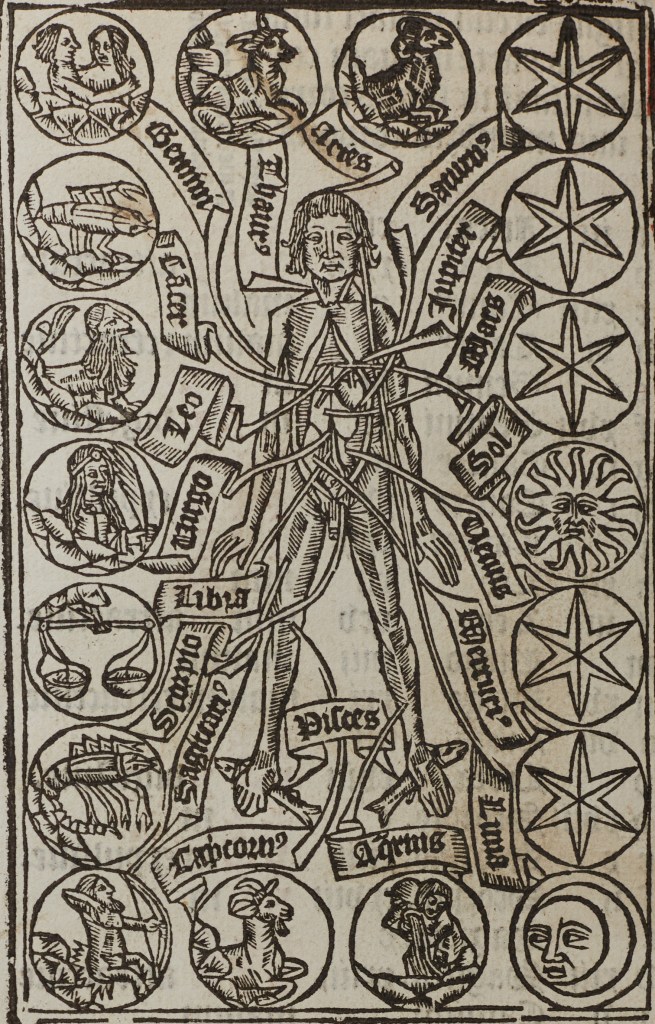 Gemini
Thaurꝰ
Aries
Saturnꝰ
Jupiter
Mars
Cācer
Leo
Sol
Uirgo
Uenus
Libra
Mercuriꝰ
Scorpio
Sagittariꝰ
Pisces
Luna
Capcornꝰ
Aq̄rius